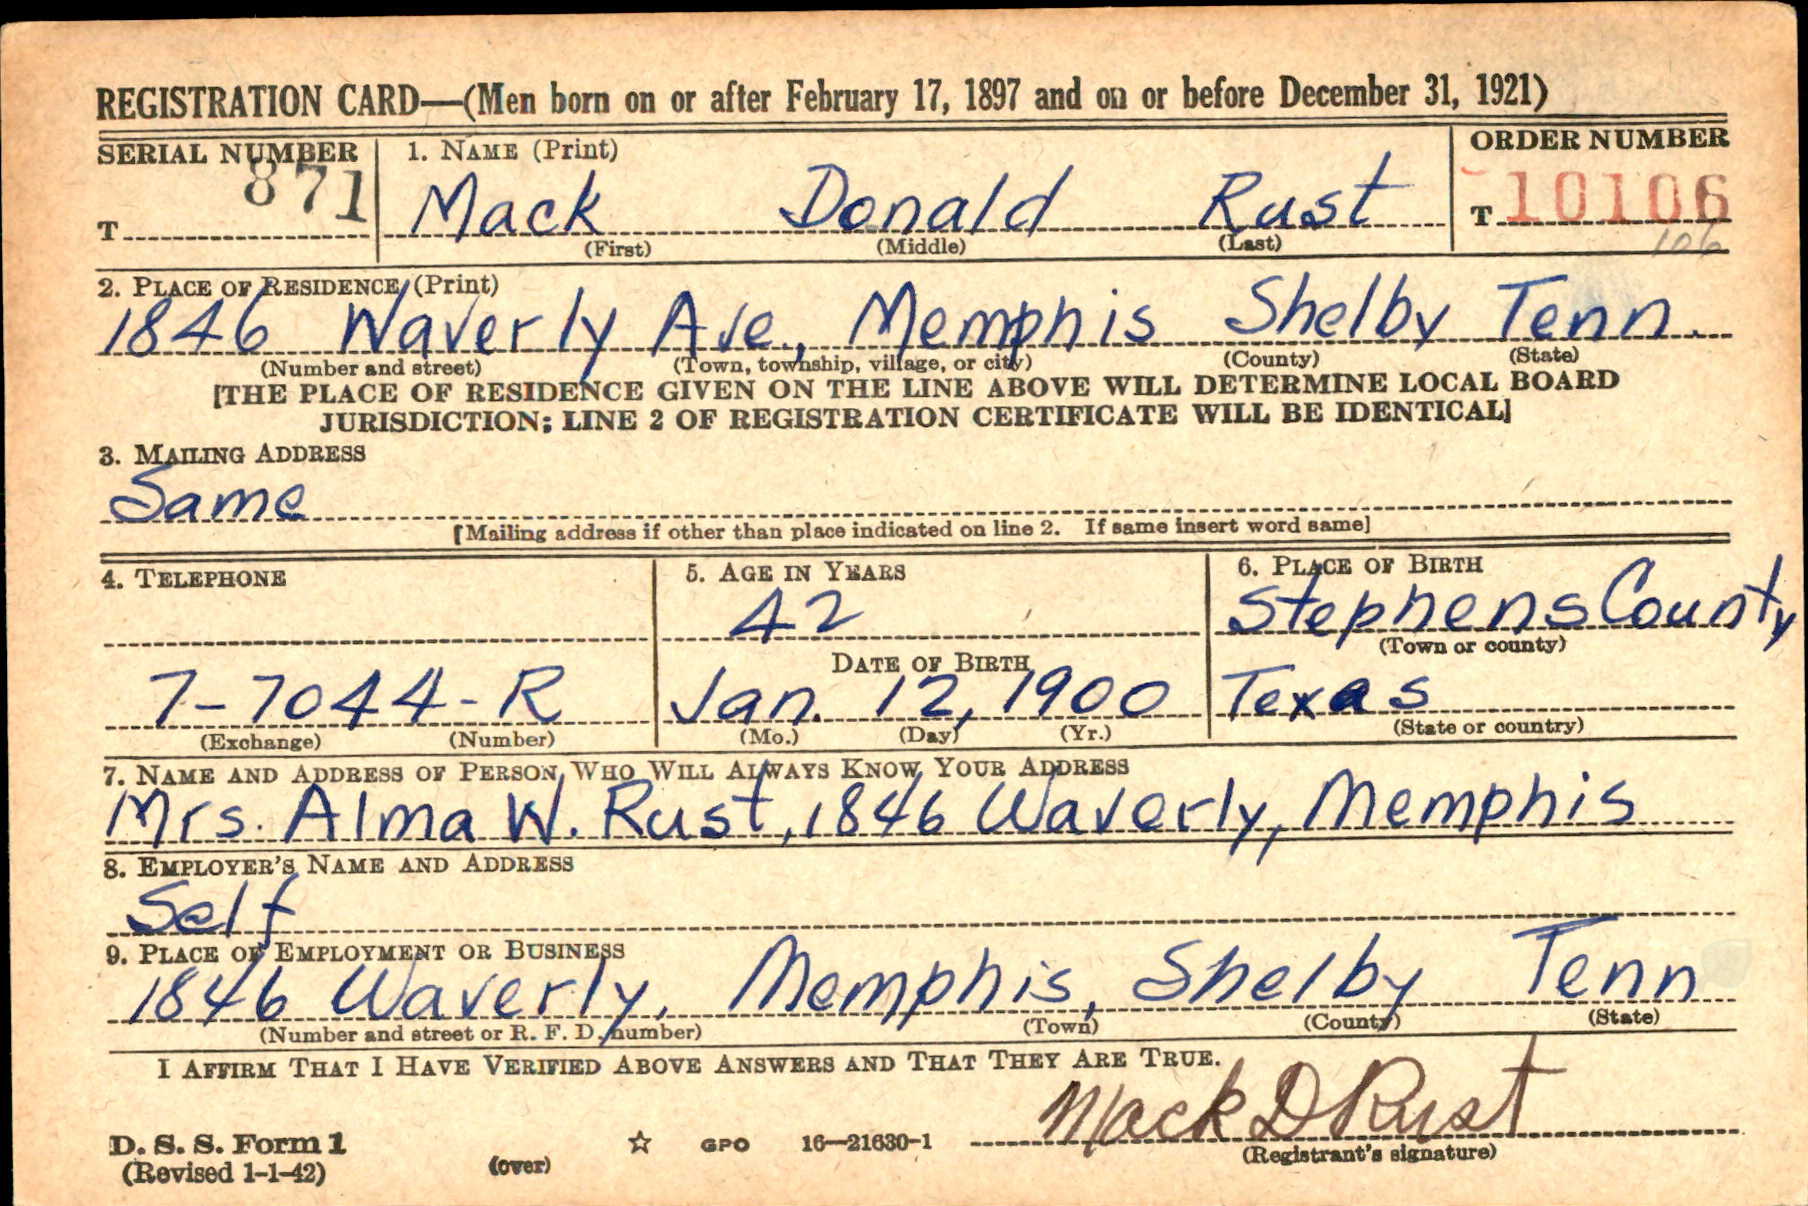 REGISTRATION CARD—(Men born on or after February 17, 1897 and on or before December 31, 1921)
SERIAL NUMBER 1. NAME (Print) ORDER NUMBER
871
T Mack Donald Rust T 10106
(First) (Middle) (Last) 106
2. PLACE OF RESIDENCE (Print)
1846 Waverly Ave., Memphis Shelby Tenn.
(Number and street) (Town, township, village, or city) (County) (State)
[THE PLACE OF RESIDENCE GIVEN ON THE LINE ABOVE WILL DETERMINE LOCAL BOARD
JURISDICTION; LINE 2 OF REGISTRATION CERTIFICATE WILL BE IDENTICAL]
3. MAILING ADDRESS
Same
[Mailing address if other than place indicated on line 2. If same insert word same]
4. TELEPHONE 5. AGE IN YEARS 6. PLACE OF BIRTH
42 Stephens County
(Town or county)
DATE OF BIRTH
7-7044-R Jan. 12, 1900 Texas
(Exchange) (Number) (Mo.) (Day) (Yr.) (State or country)
7. NAME AND ADDRESS OF PERSON WHO WILL ALWAYS KNOW YOUR ADDRESS
Mrs. Alma W. Rust, 1846 Waverly, Memphis
8. EMPLOYER'S NAME AND ADDRESS
Self
9. PLACE OF EMPLOYMENT OR BUSINESS
1846 Waverly, Memphis, Shelby Tenn
(Number and street or R. F. D. number) (Town) (County) (State)
I AFFIRM THAT I HAVE VERIFIED ABOVE ANSWERS AND THAT THEY ARE TRUE.
Mack D Rust
D. S. S. Form 1 ☆ GPO 16—21630-1
(Revised 1-1-42) (over) (Registrant's signature)